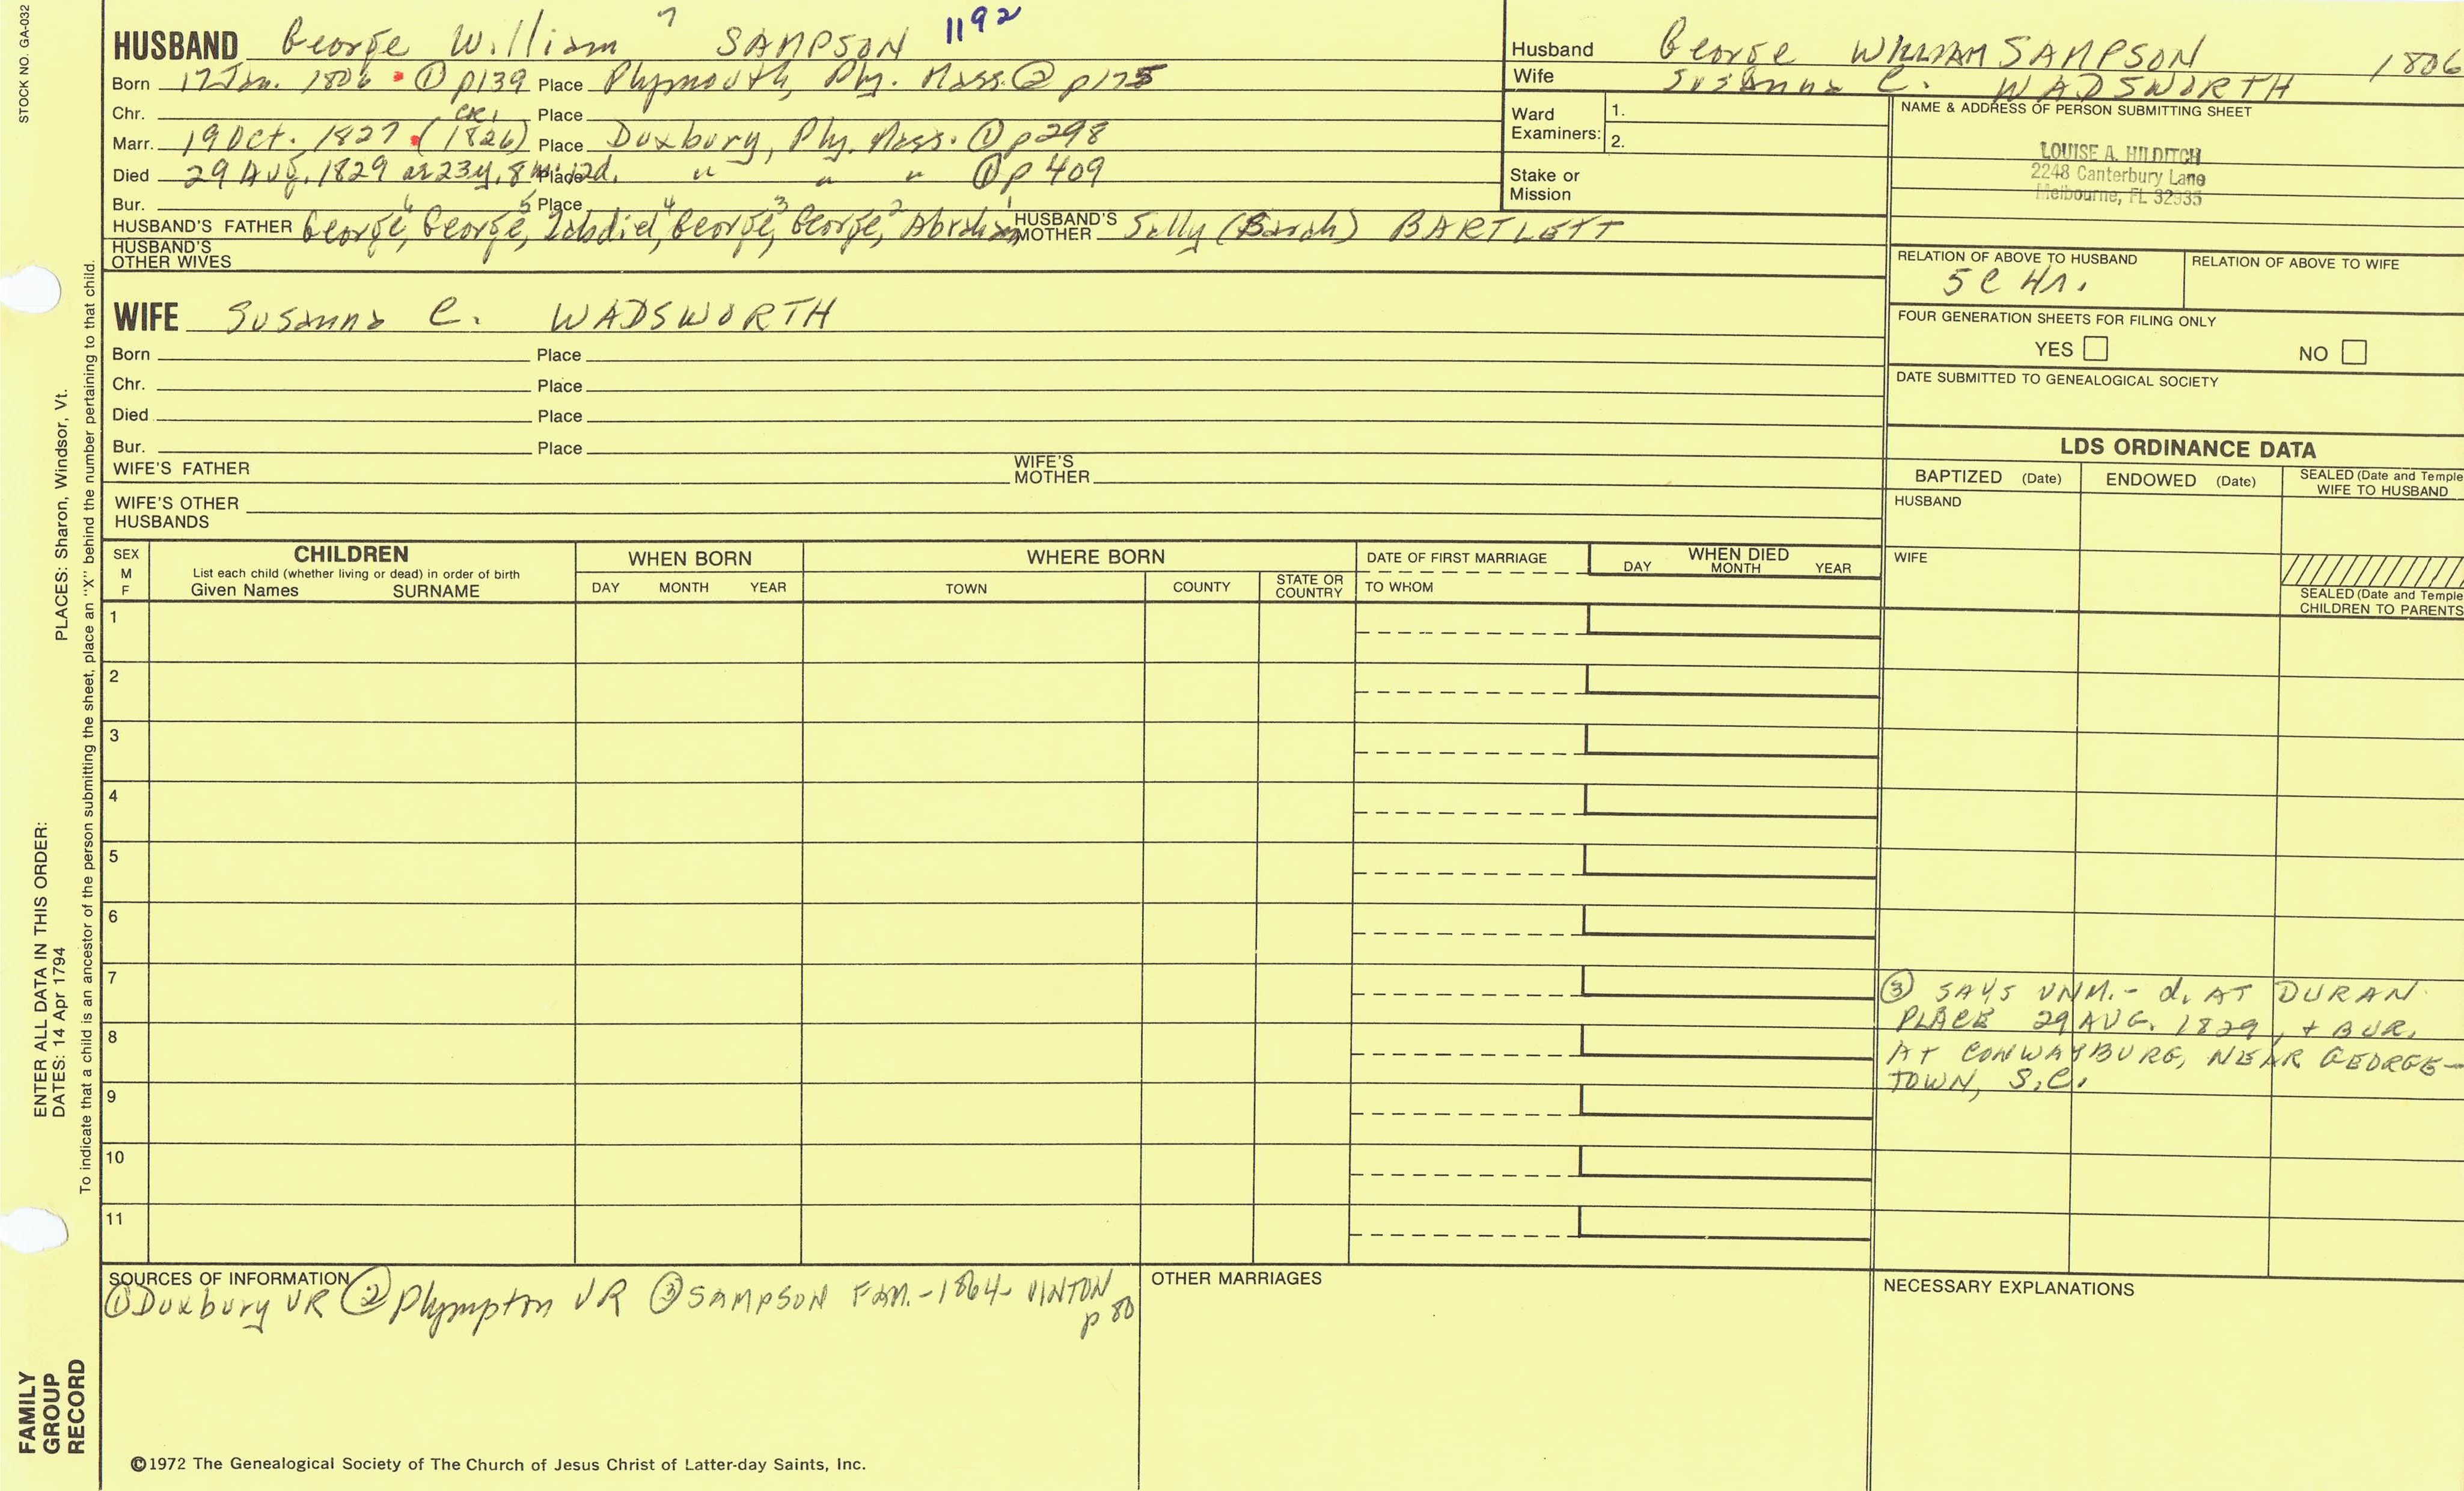 STOCK NO. GA-032
HUSBAND George William 7 SAMPSON 1192
Born 17 Jan. 1806 ① p139 Place Plymouth, Ply. Mass. ② p175
Chr. Place
CR1
Marr. 19 Oct. 1827 (1826) Place Duxbury, Ply. Mass. ① p298
Died 29 Aug. 1829 ae 23y, 8m, 12d. Place " " " ① p 409
Bur. Place
HUSBAND'S FATHER George,6 George,5 Zabdiel,4 George,3 George,2 Abraham1 HUSBAND'S MOTHER Sally (Sarah) BARTLETT
HUSBAND'S OTHER WIVES
WIFE Susanna C. WADSWORTH
Born Place
Chr. Place
Died Place
Bur. Place
WIFE'S FATHER WIFE'S MOTHER
WIFE'S OTHER HUSBANDS
Husband George WILLIAM SAMPSON 1806
Wife Susanna C. WADSWORTH
Ward Examiners: 1.
2.
Stake or Mission
NAME & ADDRESS OF PERSON SUBMITTING SHEET
LOUISE A. HILDITCH
2248 Canterbury Lane
Melbourne, FL 32935
RELATION OF ABOVE TO HUSBAND RELATION OF ABOVE TO WIFE
5C
FOUR GENERATION SHEETS FOR FILING ONLY
YES NO
DATE SUBMITTED TO GENEALOGICAL SOCIETY
LDS ORDINANCE DATA
BAPTIZED (Date) ENDOWED (Date) SEALED (Date and Temple
WIFE TO HUSBAND
HUSBAND
WIFE
SEALED (Date and Temple
CHILDREN TO PARENTS
SEX M F CHILDREN WHEN BORN WHERE BORN DATE OF FIRST MARRIAGE WHEN DIED
List each child (whether living or dead) in order of birth
Given Names SURNAME DAY MONTH YEAR TOWN COUNTY STATE OR COUNTRY TO WHOM DAY MONTH YEAR
1
2
3
4
5
6
7
8
9
10
11
③ SAYS UNM. - d. AT DURAN
PLACE 29 AUG. 1829, + BUR.
AT CONWAYBURG, NEAR GEORGE-
TOWN, S.C.
SOURCES OF INFORMATION
① Duxbury VR ② Plympton VR ③ SAMPSON FAM. - 1864 - VINTON
p 80
OTHER MARRIAGES
NECESSARY EXPLANATIONS
©1972 The Genealogical Society of The Church of Jesus Christ of Latter-day Saints, Inc.
ENTER ALL DATA IN THIS ORDER:
DATES: 14 Apr 1794 PLACES: Sharon, Windsor, Vt.
To indicate that a child is an ancestor of the person submitting the sheet, place an "X" behind the number pertaining to that child.
FAMILY
GROUP
RECORD